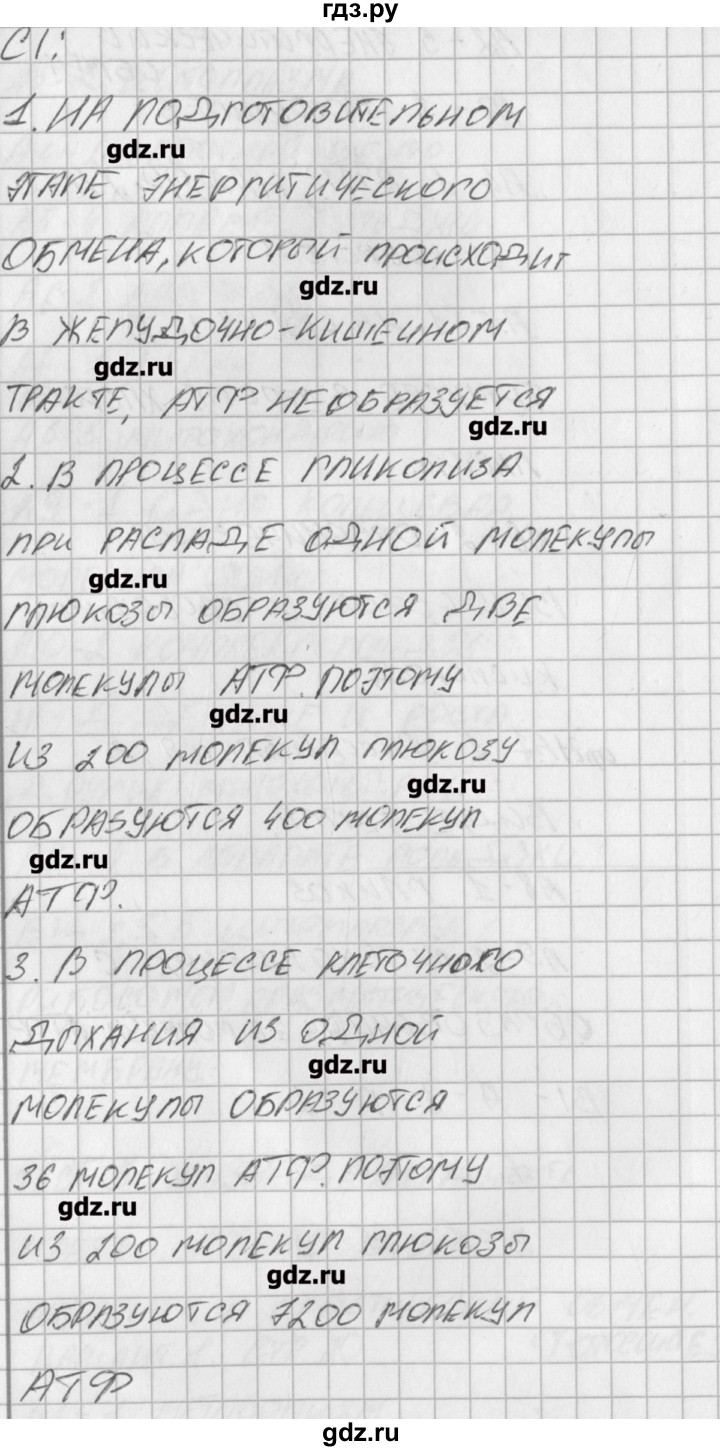 гдз.ру
С1:
1. НА ПОДГОТОВИТЕЛЬНОМ
gdz.ru
ЭТАПЕ ЭНЕРГИТИЧЕСКОГО
ОБМЕНА, КОТОРЫЙ ПРОИСХОДИТ
gdz.ru
В ЖЕЛУДОЧНО-КИШЕЧНОМ
gdz.ru
ТРАКТЕ, АТФ НЕ ОБРАЗУЕТСЯ
gdz.ru
2. В ПРОЦЕССЕ ГЛИКОЛИЗА
ПРИ РАСПАДЕ ОДНОЙ МОЛЕКУЛЫ
gdz.ru
ГЛЮКОЗЫ ОБРАЗУЮТСЯ ДВЕ
МОЛЕКУЛЫ АТФ. ПОЭТОМУ
gdz.ru
ИЗ 200 МОЛЕКУЛ ГЛЮКОЗУ
gdz.ru
ОБРАЗУЮТСЯ 400 МОЛЕКУЛ
gdz.ru
АТФ.
3. В ПРОЦЕССЕ КЛЕТОЧНОГО
ДЫХАНИЯ ИЗ ОДНОЙ
gdz.ru
МОЛЕКУЛЫ ОБРАЗУЮТСЯ
36 МОЛЕКУЛ АТФ. ПОЭТОМУ
gdz.ru
ИЗ 200 МОЛЕКУЛ ГЛЮКОЗЫ
gdz.ru
ОБРАЗУЮТСЯ 7200 МОЛЕКУЛ
АТФ
gdz.ru